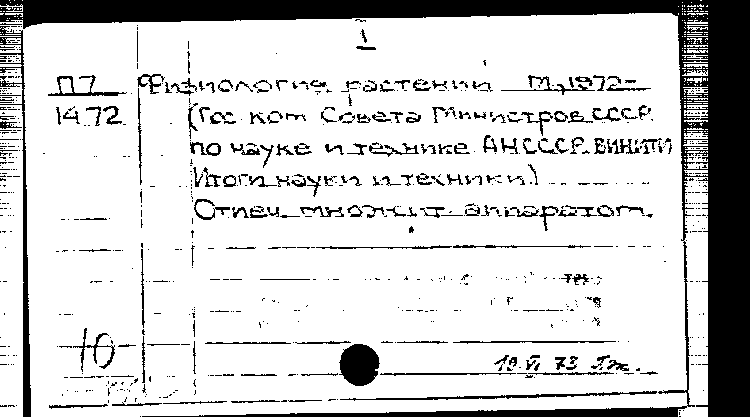 I
П7 Физиология растений М., 1972-
1472 (Гос ком Совета Министров СССР
по науке и технике АН СССР. ВИНИТИ
Итоги науки и техники.)
Отпеч. множит аппаратом.
10
19.VI 73